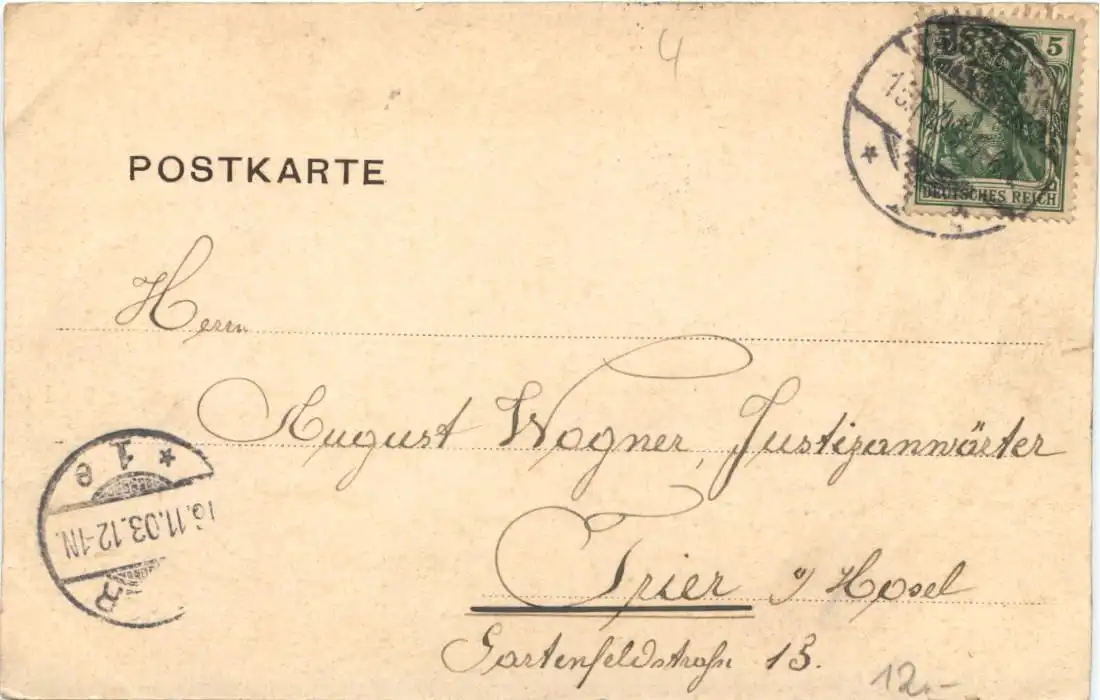 4
5
DEUTSCHES REICH
POSTKARTE
Herrn
August Wagner, Justizanwärter
Trier a/ Mosel
Gartenfeldstraße 13.
1 e
16.11.03.12-1N.
R
12.-